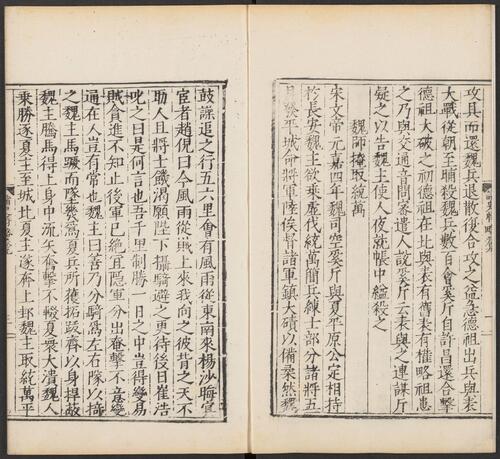 攻具而還魏兵退散後合攻之益急德祖出兵與表
大戰從朝至晡殺魏兵數百會奚斤自許昌還合擊
德祖大破之初德祖在北與表有舊表有權略祖患
之乃與交通音問密遣人說奚斤云表與之連謀斤
疑之以告魏主使人夜就帳中縊殺之
魏師掩取統萬
宋文帝元嘉四年魏司空奚斤與夏平原公定相持
於長安魏主欲乘虛伐統萬簡兵練士部分諸將五
月發平城命將軍陸俟督諸軍鎮大磧以備柔然魏
鼓譟追之行五六里會有風雨從東南來楊沙晦㝠
宦者趙倪曰今風雨從賊上來我向之彼背之天不
助人且將士飢渴願陛下攝騎避之更待後日崔浩
叱之曰是何言也吾千里制勝一日之中豈得變易
賊貪進不知止後軍已絶宜隱軍分出奄擊不意變
道在人豈有常也魏主曰善乃分騎爲左右隊以掎
之魏主馬蹶而墜幾爲夏兵所獲拓跋齊以身捍蔽
魏主騰馬得上身中流矢奮擊不輟夏衆大潰魏人
乘勝逐夏主至城北夏主遂奔上邽魏主取統萬平